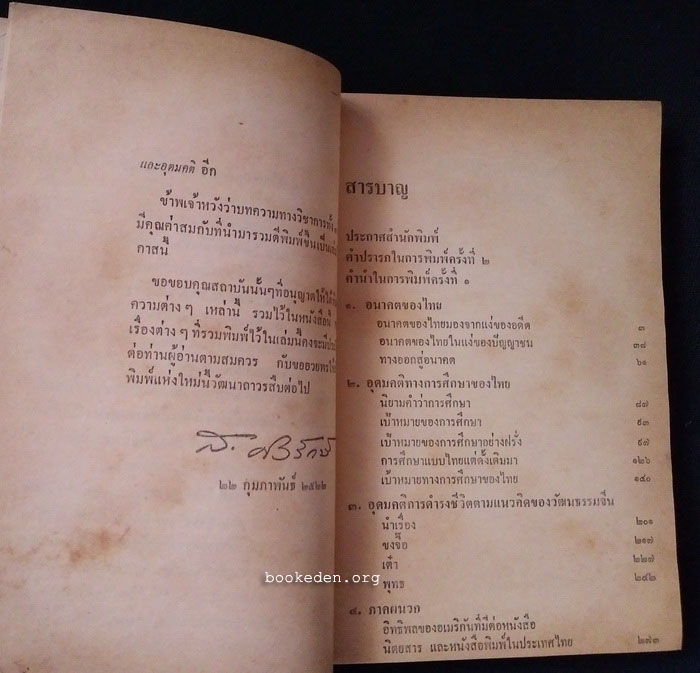 และอุดมคติ อีก
ข้าพเจ้าหวังว่าบทความทางวิชาการทั้ง
มีคุณค่าสมกับที่นำมารวมตีพิมพ์ขึ้นเป็น
กาสนี้
ขอขอบคุณสถาบันนั้นๆที่อนุญาตให้ได้
ความต่างๆ เหล่านี้ รวมไว้ในหนังสือนี้
เรื่องต่างๆ ที่รวมพิมพ์ไว้ในเล่มนี้คงจะมี
ต่อท่านผู้อ่านตามสมควร กับขออวยพรให้
พิมพ์แห่งใหม่นี้วัฒนาถาวรสืบต่อไป
ส. ศิวรักษ์
๒๒ กุมภาพันธ์ ๒๕๒๒
สารบาญ
ประกาศสำนักพิมพ์
คำปรารภในการพิมพ์ครั้งที่ ๒
คำนำในการพิมพ์ครั้งที่ ๑
๑. อนาคตของไทย
อนาคตของไทยมองจากแง่ของอดีต ๓
อนาคตของไทยในแง่ของปัญญาชน ๓๘
ทางออกสู่อนาคต ๖๑
๒. อุดมคติทางการศึกษาของไทย
นิยามคำว่าการศึกษา ๘๗
เป้าหมายของการศึกษา ๙๓
เป้าหมายของการศึกษาอย่างฝรั่ง ๙๗
การศึกษาแบบไทยแต่ดั้งเดิมมา ๑๒๖
เป้าหมายทางการศึกษาของไทย ๑๔๐
๓. อุดมคติการดำรงชีวิตตามแนวคิดของวัฒนธรรมจีน
นำเรื่อง ๒๐๑
ขงจื๊อ ๒๑๗
เต๋า ๒๒๗
พุทธ ๒๔๒
๔. ภาคผนวก
อิทธิพลของอเมริกันที่มีต่อหนังสือ
นิตยสาร และหนังสือพิมพ์ในประเทศไทย ๒๗๓
bookeden.org